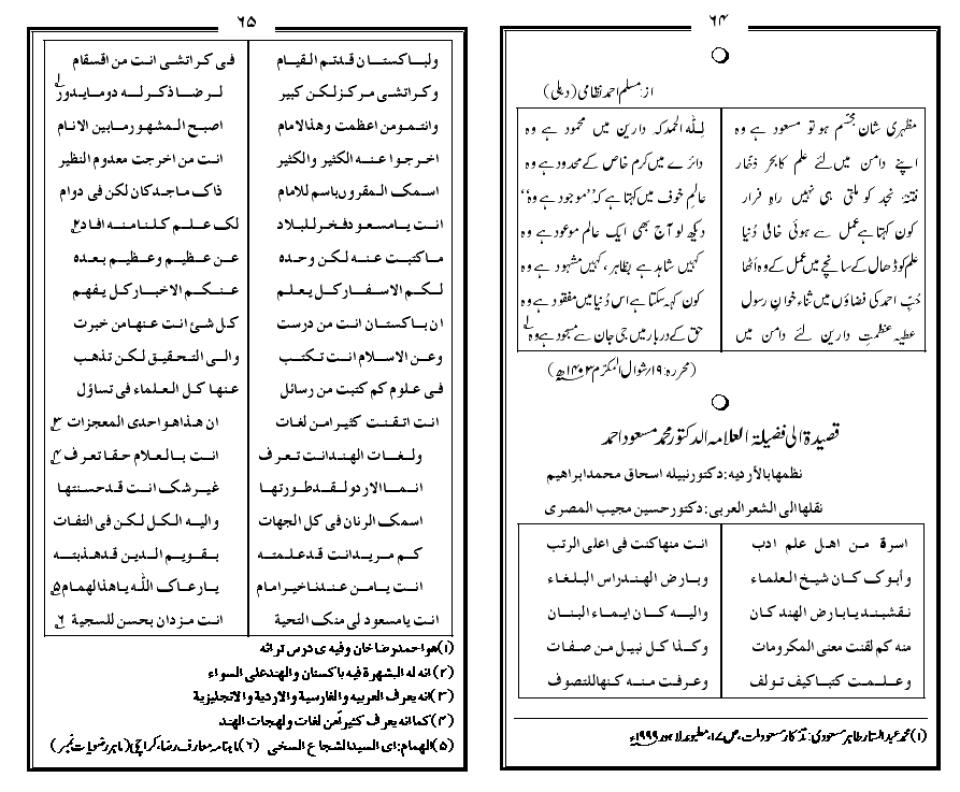 ۶۴
از: مسلم احمد نظامی (دہلی)
مظہری شان مجسّم ہو تو مسعود ہے وہ لِلّٰه الحمد کہ دارین میں محمود ہے وہ
اپنے دامن میں لئے علم کا بحر ذخّار دائرے میں کرم خاص کے محدود ہے وہ
فتنۂ نجد کو ملتی ہی نہیں راہِ فرار عالمِ خوف میں کہتا ہے کہ ’’موجود ہے وہ‘‘
کون کہتا ہے عمل سے ہوئی خالی دُنیا دیکھ لو آج بھی ایک عالم موعود ہے وہ
علم کو ڈھال کے سانچے میں عمل کے وہ اُٹھا کہیں شاہد ہے بظاہر، کہیں مشہود ہے وہ
حُبِّ احمد کی فضاؤں میں ثناء خوانِ رسول کون کہہ سکتا ہے اس دُنیا میں مفقود ہے وہ
عطیہ عظمتِ دارین لئے دامن میں حق کے دربار میں جی جان سے مسجود ہے وہ ۱
(محررہ: ۱۹/شوال المکرّم ۱۴۰۲ھ)
قصیدة الی فضیلة العلامه الدکتور محمد مسعود احمد
نظمها بالأردیه: دکتور نبیله اسحاق محمد ابراهیم
نقلها الی الشعر العربی: دکتور حسین مجیب المصری
اسرة من اهل علم ادب انت منها کنت فی اعلی الرتب
وأبوک کان شیخ العلماء وبارض الهند راس البلغاء
نقشبند یا بارض الهند کان والیه کان ایماء البنان
منه کم لقنت معنی المکرومات وکذا کل نبیل من صفات
وعلمت کتبا کیف تولف وعرفت منه کنها للتصوف
(۱) محمد عبدالستار طاہر مسعودی: تذکار مسعود ملت، ص ۱۷، مطبوعہ لاہور ۱۹۹۹ء
۶۵
ولباکستان قدتم القیام فی کراتشی انت من اقسقام
وکراتشی مرکز لکن کبیر لرضا ذکر له دوما یدور ۱
وانتمو من اعظمت وهذا لامام اصبح المشهور ما بین الانام
اخرجوا عنه الکثیر والکثیر انت من اخرجت معدوم النظیر
اسمک المقرون باسم للامام ذاک ماجد کان لکن فی دوام
انت یا مسعود فخر للبلاد لک علم کلنا منه افاد ۲
ما کتبت عنه لکن وحده عن عظیم وعظیم بعده
لکم الاسفار کل یعلم عنکم الاخبار کل یفهم
ان باکستان انت من درست کل شئ انت عنها من خبرت
وعن الاسلام انت تکتب والی التحقیق لکن تذهب
فی علوم کم کتبت من رسائل عنها کل العلماء فی تساؤل
انت اتقنت کثیرا من لغات ان هذا هو احدی المعجزات ۳
ولغات الهند انت تعرف انت بالعلام حقا تعرف ۴
انما الاردو لقد طورتها غیر شک انت قد حسنتها
اسمک الرنان فی کل الجهات والیه الکل لکن فی التفات
کم مرید انت قد علمته بقویم الدین قد هذبته
انت یا من عندنا خیر امام یا رعاک اللّٰه یا هذا لهمام ۵
انت یا مسعود لی منک التحیة انت مزدان بحسن للسجیة ۶
(۱) هو احمد رضا خان وفیه ی درس تراثه
(۲) انه له البشهرة فیه باکستان والهند علی السواء
(۳) انه یعرف العربیه والفارسیة والاردیة والانجلیزیة
(۴) کما انه یعرف کثیر تمن لغات ولهجات الهند
(۵) الهمام: ای السید الشجاع السخی (۶) ماہنامہ معارف رضا، کراچی (ماہر رضویات نمبر)